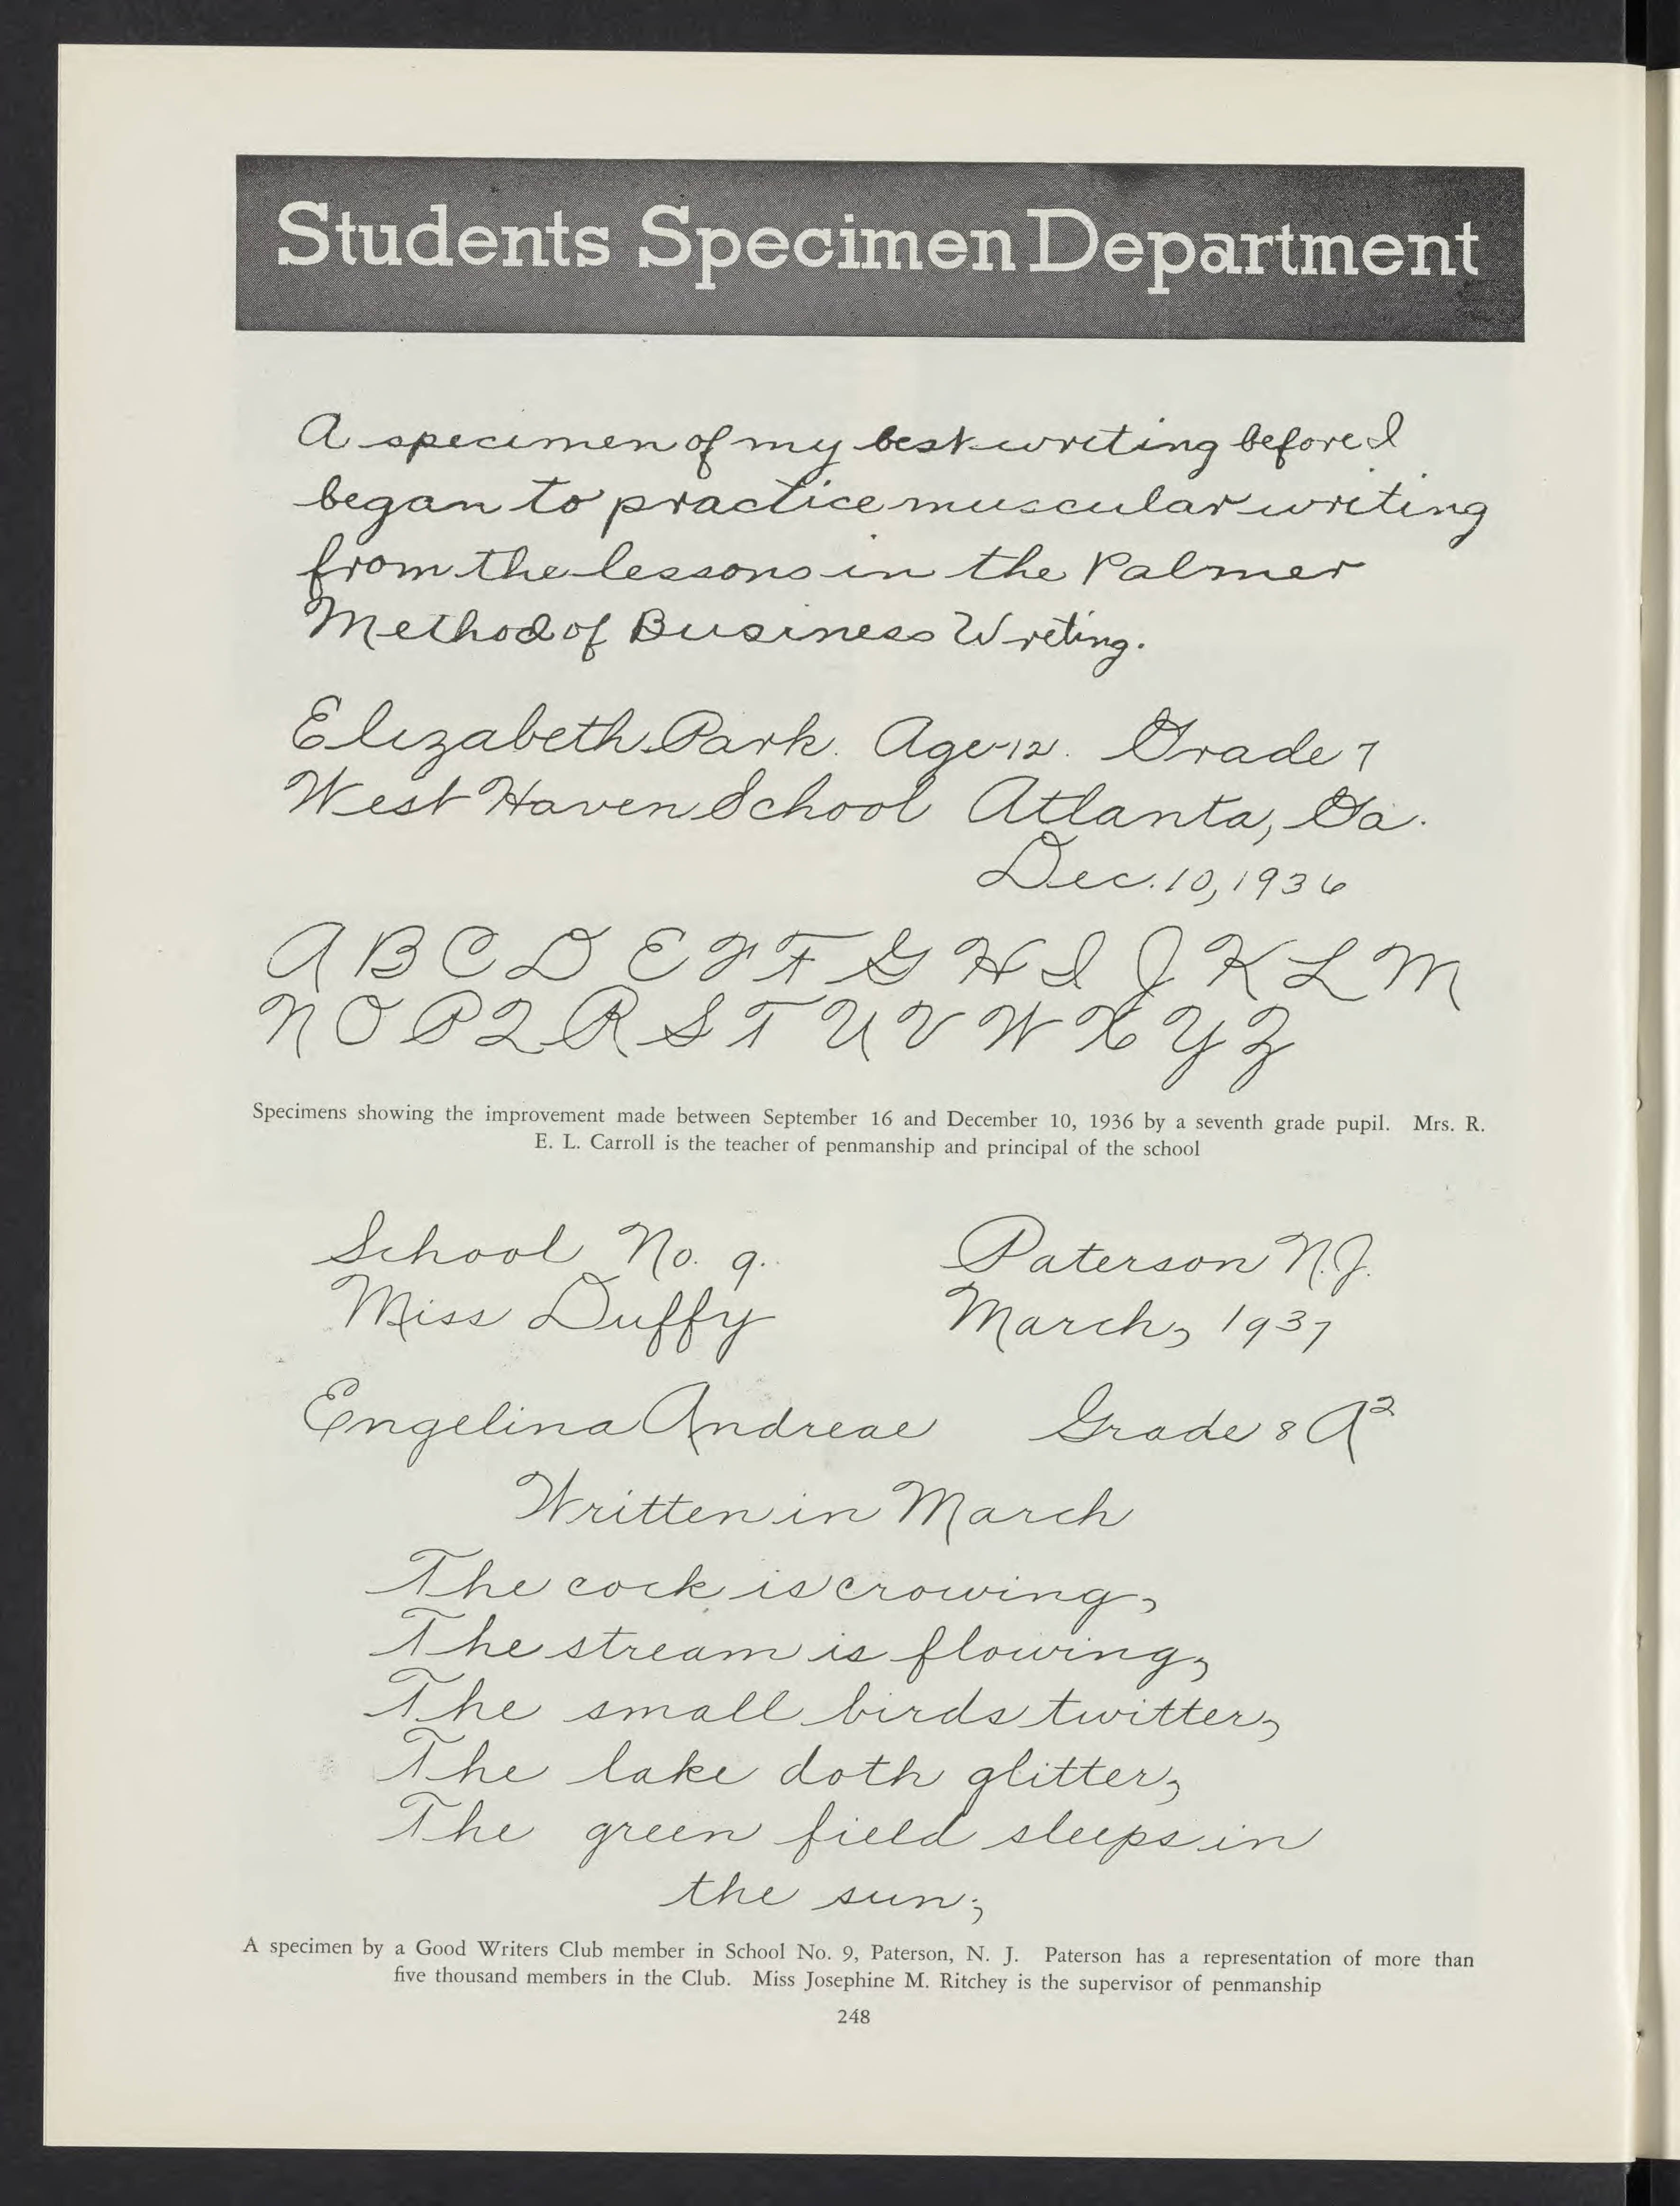 Students Specimen Department
A specimen of my best writing before I
began to practice muscular writing
from the lessons in the Palmer
Method of Business Writing.
Elizabeth Park. Age-12. Grade 7
West Haven School Atlanta, Ga.
Dec. 10, 1936
A B C D E F F G H I J K L M
N O P Q R S T U V W X Y Z
Specimens showing the improvement made between September 16 and December 10, 1936 by a seventh grade pupil. Mrs. R.
E. L. Carroll is the teacher of penmanship and principal of the school
School No. 9. Paterson N.J.
Miss Duffy March, 1937
Engelina Andreae Grade 8 A²
Written in March
The cock is crowing,
The stream is flowing,
The small birds twitter,
The lake doth glitter,
The green field sleeps in
the sun;
A specimen by a Good Writers Club member in School No. 9, Paterson, N. J. Paterson has a representation of more than
five thousand members in the Club. Miss Josephine M. Ritchey is the supervisor of penmanship
248